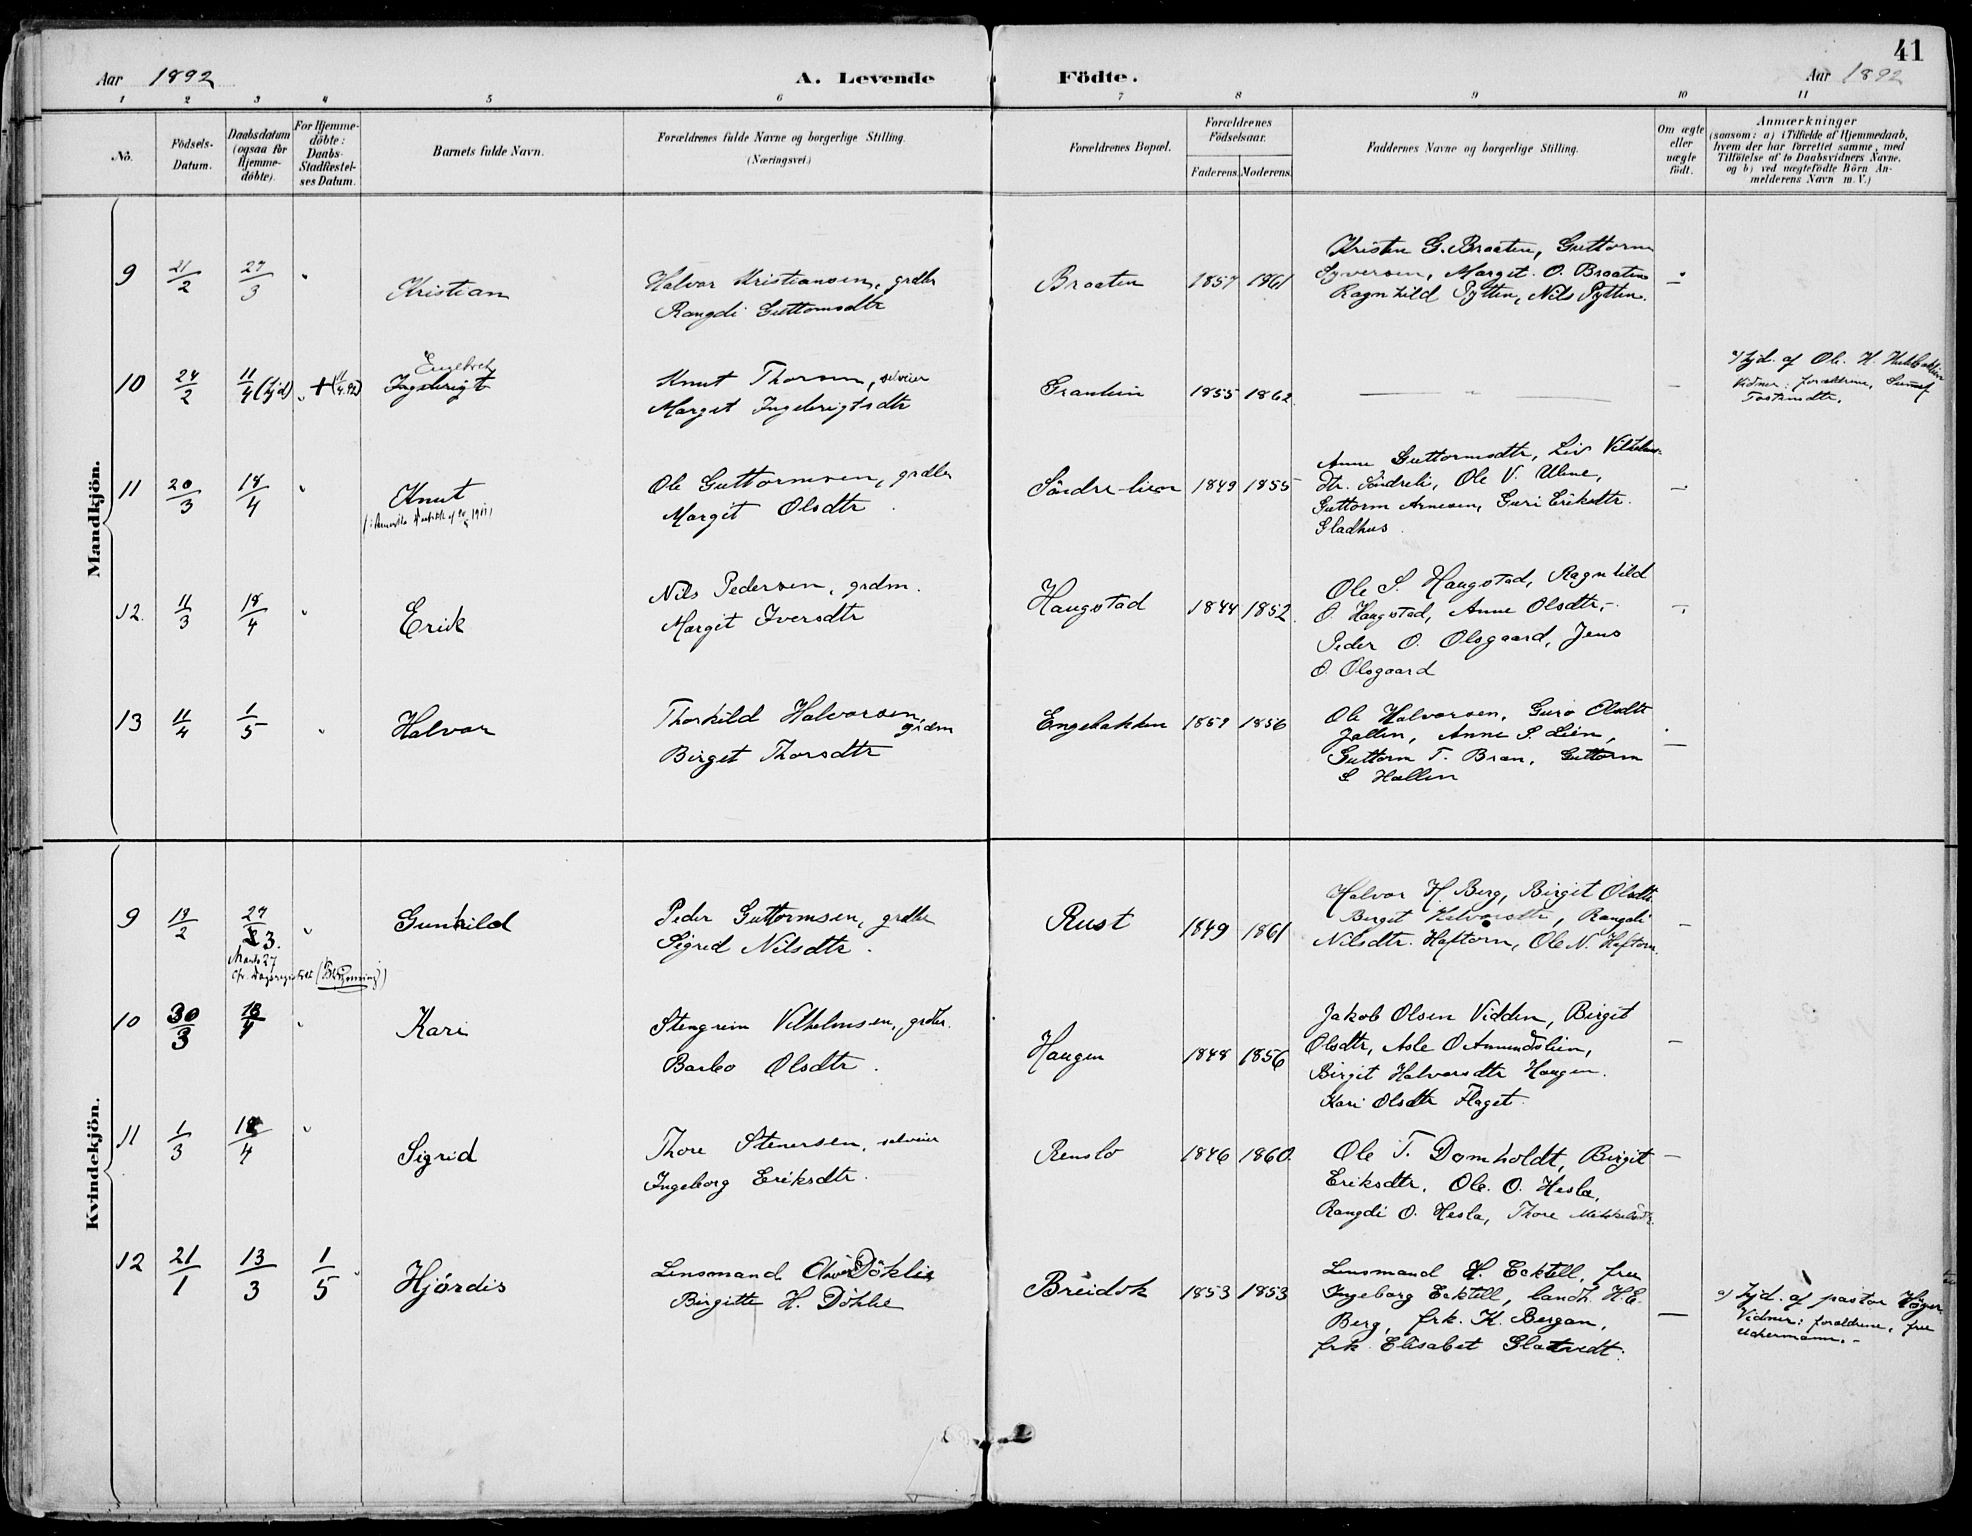 41
Aar 1892 A. Levende Födte. Aar 1892
1 2 3 4 5 6 7 8 9 10 11
No.
Födsels-
Datum.
Daabsdatum
(ogsaa for
Hjemme-
döbte).
For Hjemme-
döbte:
Daabs-
Stadfæstel-
ses Datum.
Barnets fulde Navn.
Forældrenes fulde Navne og borgerlige Stilling.
(Næringsvei.)
Forældrenes Bopæl.
Forældrenes
Födselsaar.
Faderens. Moderens.
Faddernes Navne og borgerlige Stilling.
Om ægte
eller
uægte
födt.
Anmærkninger
(saasom: a) i Tilfælde af Hjemmedaab,
hvem der har forrettet samme, med
Tilföielse af to Daabsvidners Navne,
og b) ved uægtefödte Börn An-
melderens Navn m. V.)
Mandkjön.
9 21/2 27/3 " Kristian
Halvor Kristiansen, grdbr
Rangdi Guttormsdtr
Braaten 1857 1861
Kristen G. Braaten, Guttorm
Syversen, Margit O. Braaten
Ragnhild Pytten, Nils Pytten.
10 24/2 11/4 (hjd) + (11/4.92)
Engebret
Ingebrigt
Knut Thorsen, selveier
Margit Ingebrigtsdtr
Granlien 1855 1862.
a) hjd. af Ole H.
Vidner: forældrene,
Tostensdtr.
11 20/3 18/4 " Knut
Ole Guttormsen, grdbr
Margit Olsdtr
Söndre-lien 1849 1855
Anne Guttormsdtr, Liv Vilhelms-
dtr. Söndreli, Ole V. Ulme,
Guttorm Arnesen, Guri Eriksdtr.
Gladhus
12. 11/3 18/4 " Erik
Nils Pedersen, grdm.
Margit Iversdtr
Haugstad 1844 1852.
Ole S. Haugstad, Ragnhild
O. Haugstad, Anne Olsdtr,
Peder O. Olsgaard, Jens
O. Olsgaard
13 11/4 1/5 " Halvor
Thorkild Halvorsen,
grdm
Birget Thorsdtr
Engebakken 1859 1856
Ole Halvorsen, Guro Olsdtr
Jallin, Anne S. Lien,
Guttorm T. Bran, Guttorm
G Hallin
Kvindekjön.
9 19/2 27/3. " Gunhild
Marts 27
cfr. Dagsregistret
Peder Guttormsen, grdbr
Sigrid Nilsdtr.
Rust 1849 1861
Halvor H. Berg, Birgit Olsdtr
Berget Halvorsdtr, Rangdi
Nilsdtr. Haftorn, Ole N. Haftorn.
10 30/3 18/4 " Kari
Stengrim Vilhelmsen, grdbr.
Barbo Olsdtr.
Haugen 1848 1856
Jakob Olsen Vidden, Birgit
Olsdtr, Asle O Amundslien,
Birgit Halvorsdtr Haugen.
Kari Olsdtr Flaget.
11 1/3 18/4 " Sigrid
Thore Stenersen, selveier
Ingeborg Eriksdtr.
Renslo 1846 1860.
Ole T. Domholdt, Birgit
Eriksdtr, Ole O. Hesla,
Rangdi O. Hesla, Thore
12 21/1 13/3 1/5 Hjördis
Lensmand Oliver Döhlie
Birgitte H. Döhlie
Breidok 1853 1853
Lensmand H. Ecktell, fru
Ingeborg Ecktell, landh. H.E.
Berg, frk. K. Bergan,
frk. Elisabet Glatvedt.
a) hjd. af pastor Höyer
Vidner: forældrene, fru
Uchermann.